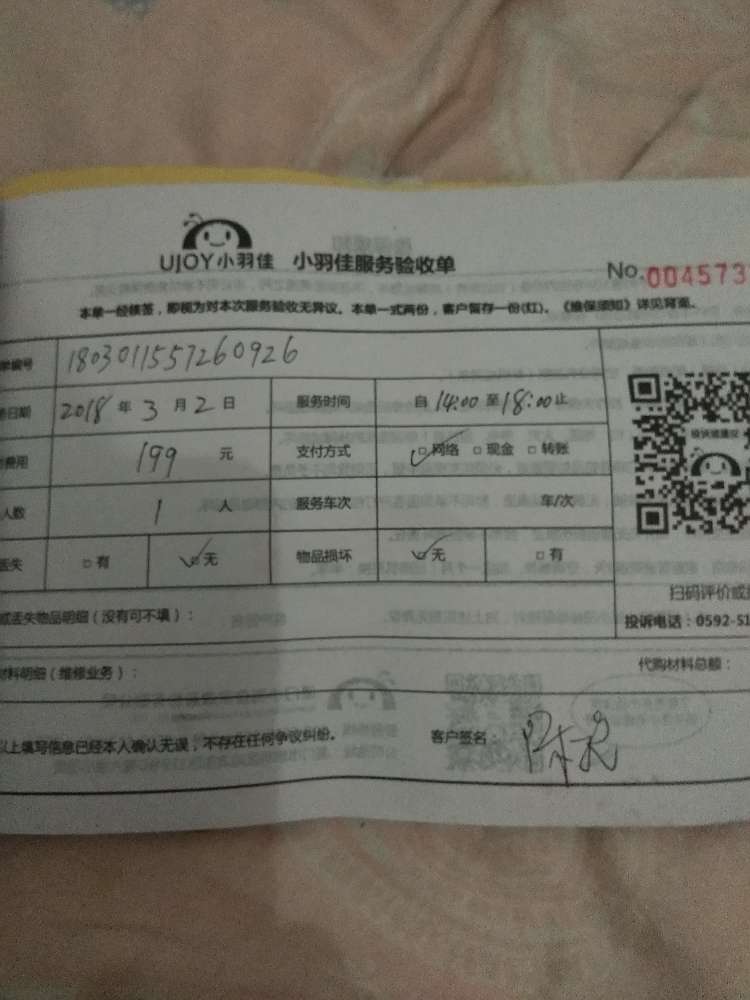 UJOY小羽佳 小羽佳服务验收单
No.004573
本单一经核签，即视为对本次服务验收无异议。本单一式两份，客户留存一份(红)。《维保须知》详见背面。
单编号 1803011557260926
务日期 2018 年 3 月 2 日 服务时间 自 14:00 至 18:00 止
费用 199 元 支付方式 □网络 □现金 □转账
人数 1 人 服务车次 车/次
丢失 □有 □无 物品损坏 □无 □有
扫码评价或
或丢失物品明细（没有可不填）：
投诉电话：0592-51
材料明细（维修业务）： 代购材料总额：
以上填写信息已经本人确认无误，不存在任何争议纠纷。 客户签名：